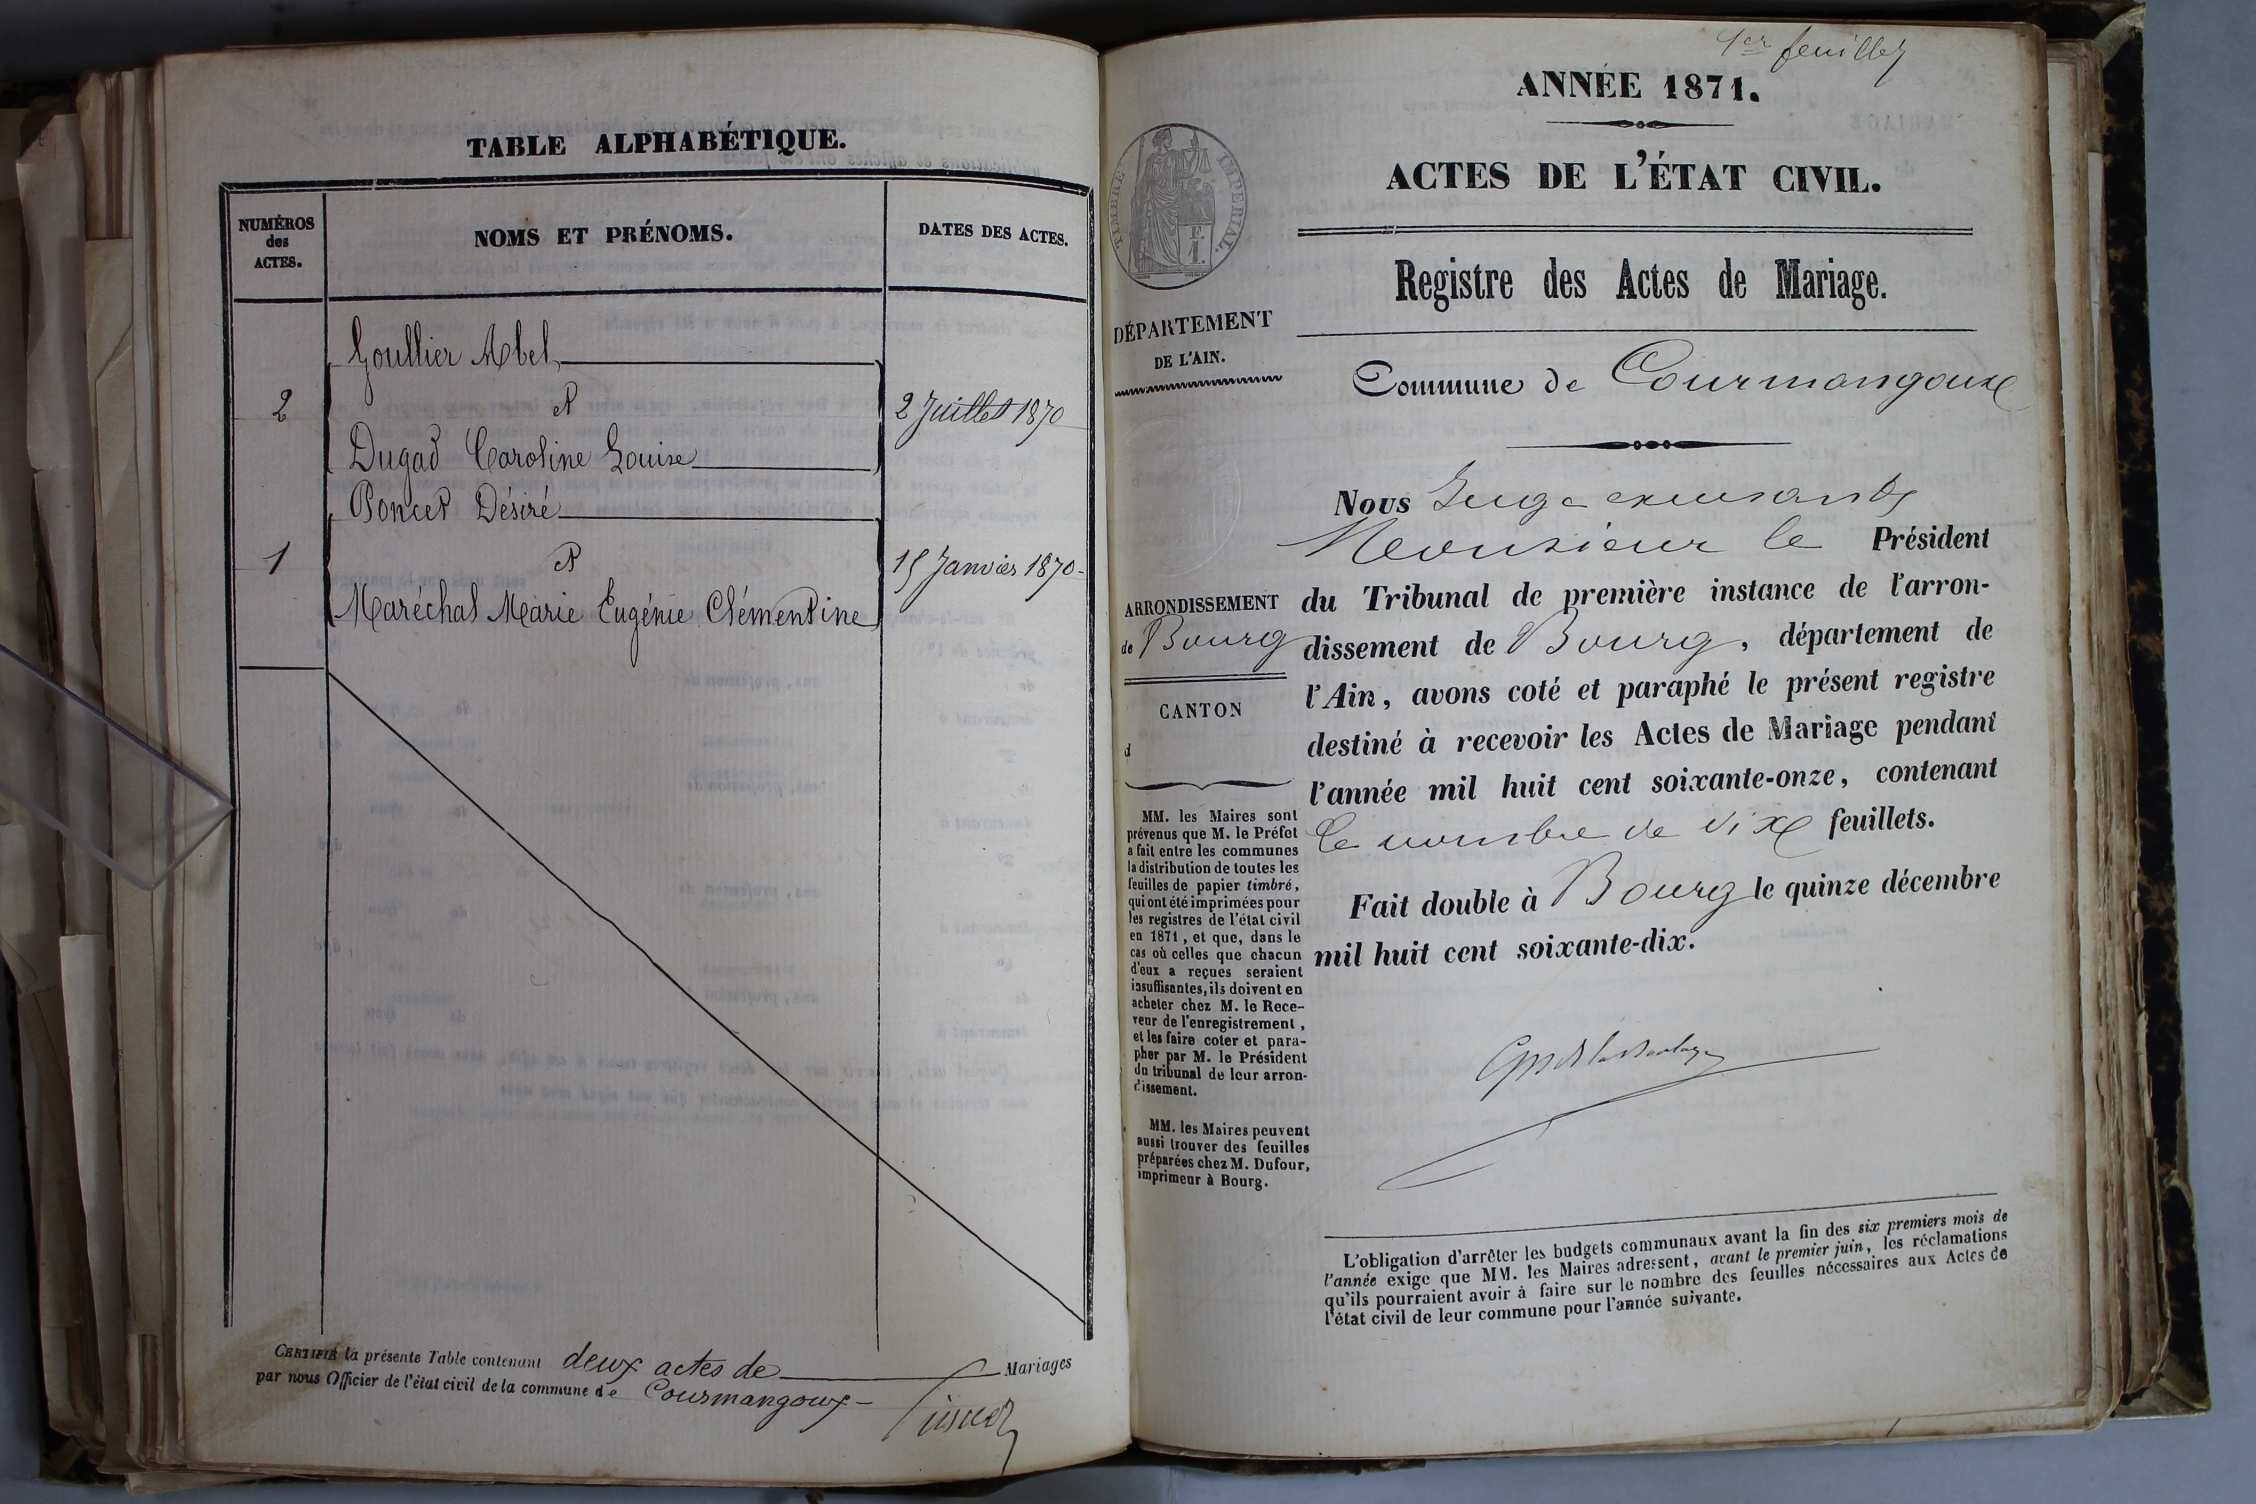 TABLE ALPHABÉTIQUE.
NUMÉROS
des
ACTES.
NOMS ET PRÉNOMS.
DATES DES ACTES.
Goullier Abel
2
et
2 Juillet 1870
Dugad Caroline Louise
Poncet Désiré
1
et
15 Janvier 1870
Maréchal Marie Eugénie Clémentine
CERTIFIÉ la présente Table contenant deux actes de Mariages
par nous Officier de l'état civil de la commune de Courmangoux
1er feuillet
ANNÉE 1871.
ACTES DE L'ÉTAT CIVIL.
TIMBRE IMPERIAL.
Registre des Actes de Mariage.
DÉPARTEMENT
DE L'AIN.
Commune de Courmangoux
Nous Juge
Monsieur le Président
du Tribunal de première instance de l'arron-
dissement de Bourg, département de
l'Ain, avons coté et paraphé le présent registre
destiné à recevoir les Actes de Mariage pendant
l'année mil huit cent soixante-onze, contenant
le nombre de dix feuillets.
Fait double à Bourg le quinze décembre
mil huit cent soixante-dix.
ARRONDISSEMENT
de Bourg
CANTON
d
MM. les Maires sont
prévenus que M. le Préfet
a fait entre les communes
la distribution de toutes les
feuilles de papier timbré,
qui ont été imprimées pour
les registres de l'état civil
en 1871, et que, dans le
cas où celles que chacun
d'eux a reçues seraient
insuffisantes, ils doivent en
acheter chez M. le Rece-
veur de l'enregistrement,
et les faire coter et para-
pher par M. le Président
du tribunal de leur arron-
dissement.
MM. les Maires peuvent
aussi trouver des feuilles
préparées chez M. Dufour,
imprimeur à Bourg.
L'obligation d'arrêter les budgets communaux avant la fin des six premiers mois de
l'année exige que MM. les Maires adressent, avant le premier juin, les réclamations
qu'ils pourraient avoir à faire sur le nombre des feuilles nécessaires aux Actes de
l'état civil de leur commune pour l'année suivante.